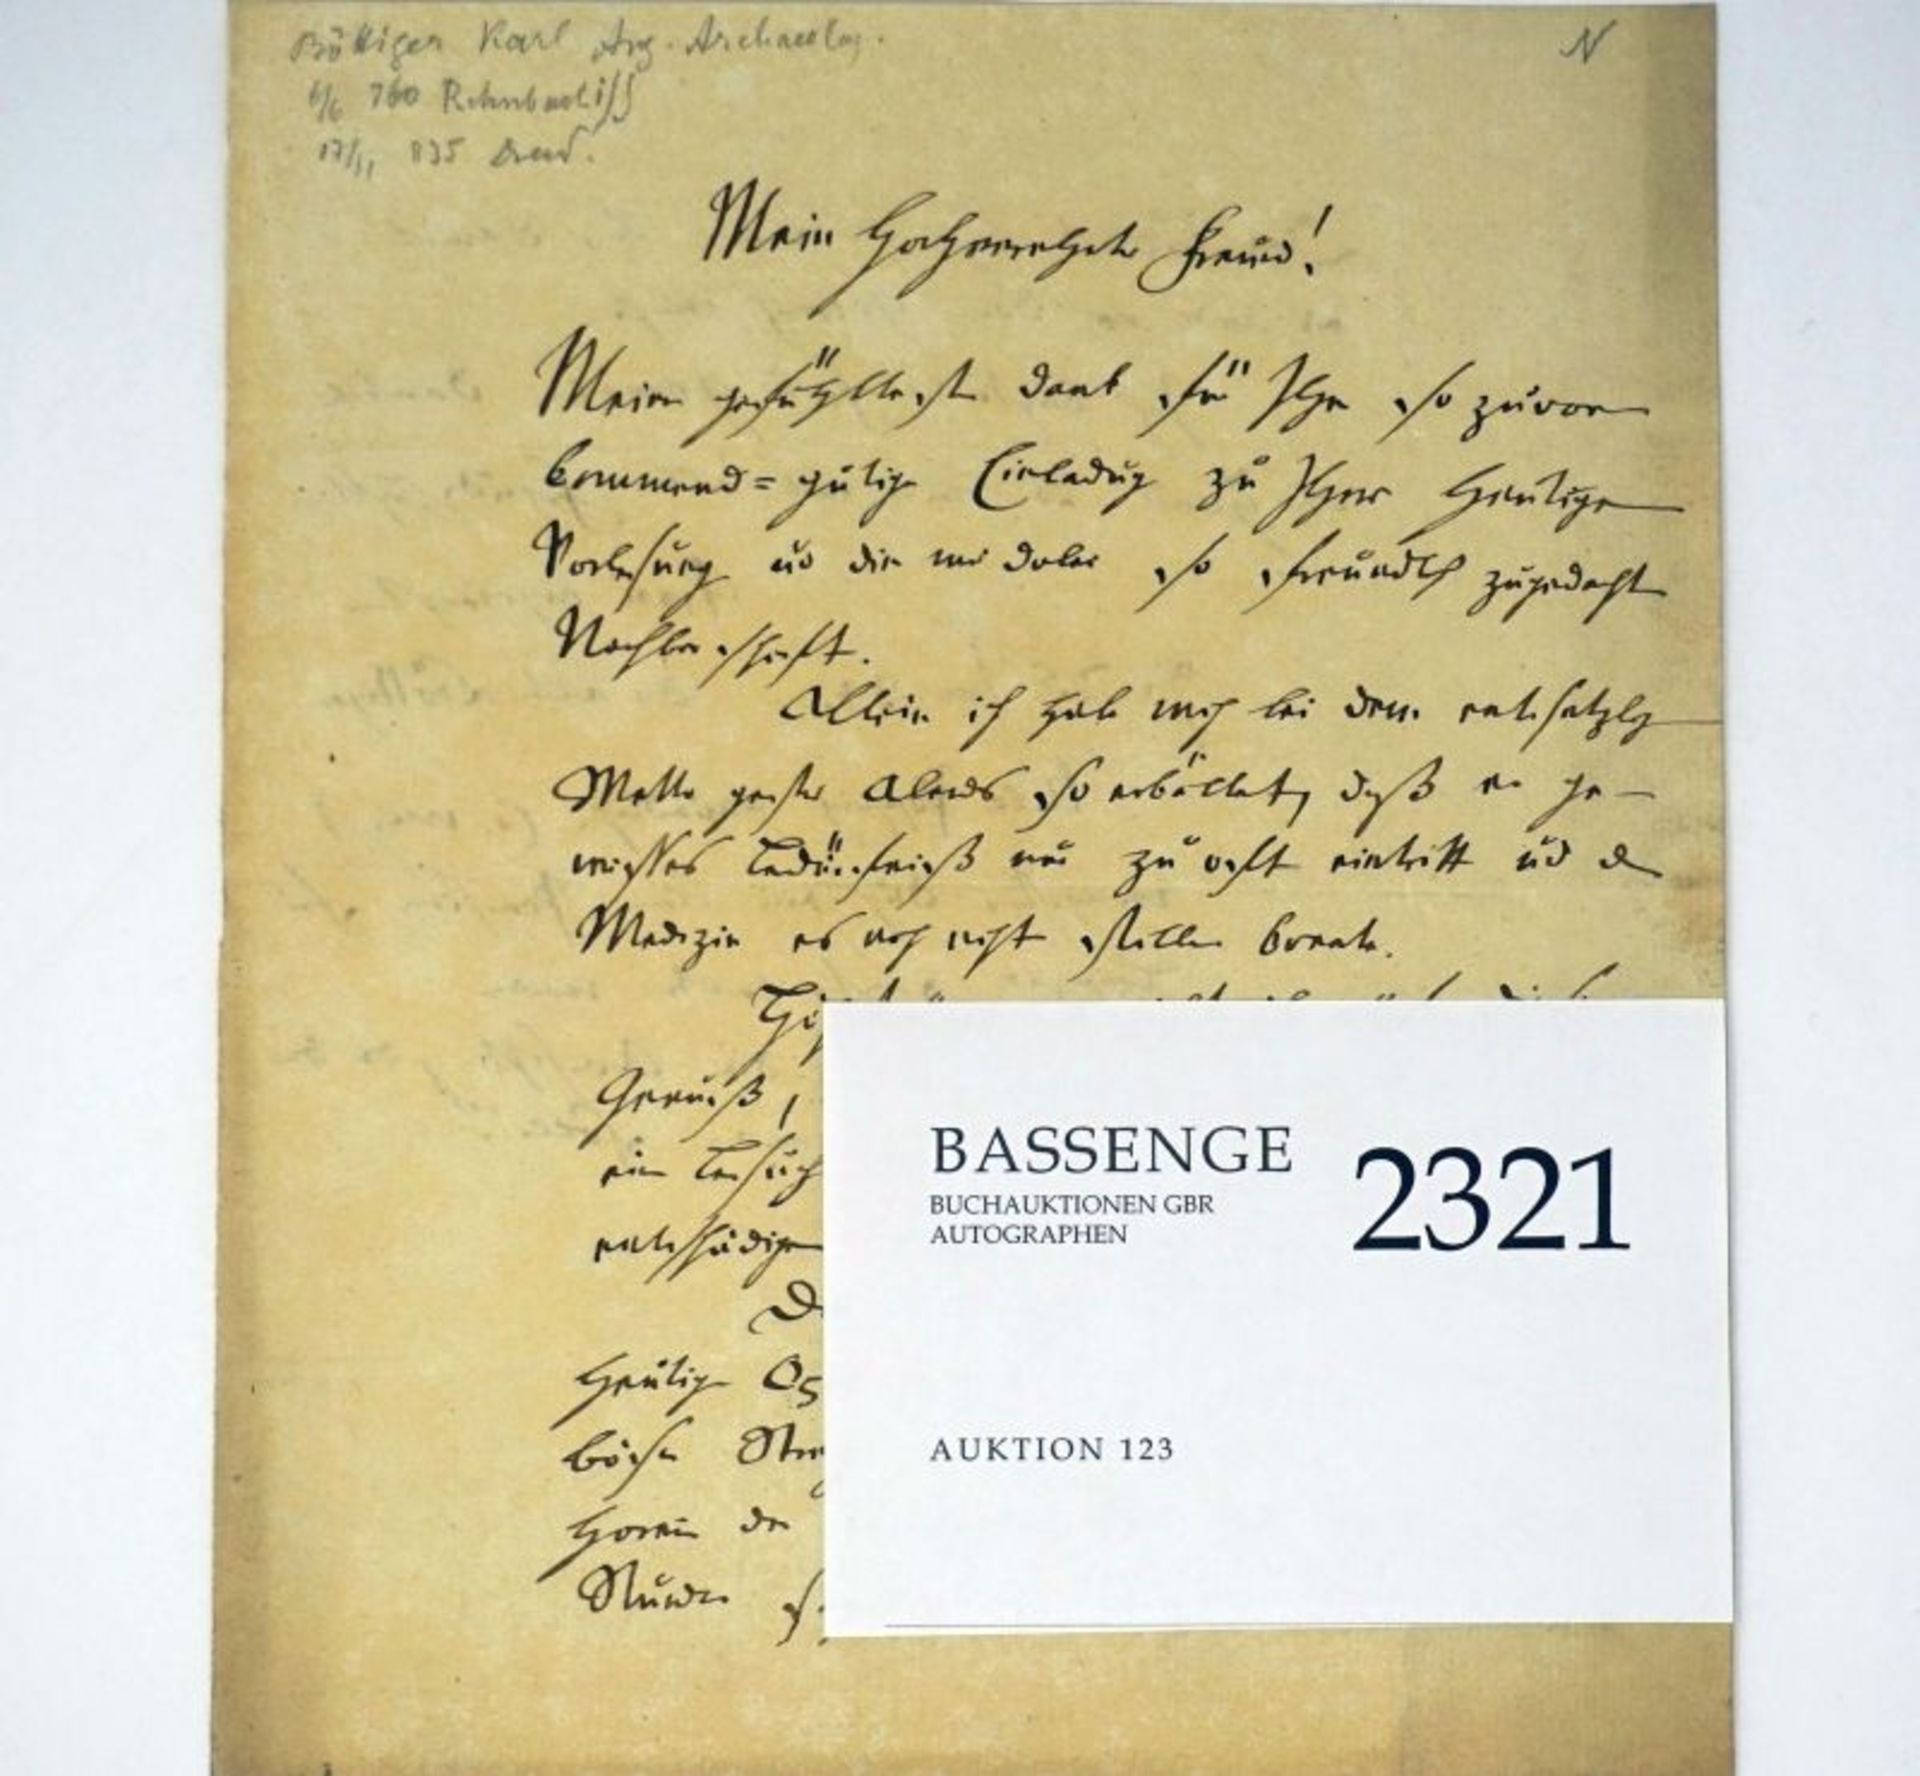 Böttiger Karl Aug. Archaeolog.
N
6/6 760 Reichenbach i/S
17/11 835 Dresd.
Mein hochverehrter Freund!
Meinen gefühltesten Dank für Ihre so zuvor
kommend= gütige Einladung zu Ihrer heutigen
Vorlesung und die mir dabei so freundlich zugedachte
Nachbarschaft.
Allein ich habe mich bei dem entsetzlichen
Wetter gestern Abends so erkältet, daß ein ge-
wisses Bedürfniß nur zu oft eintritt und die
Medizin es noch nicht stillen konnte.
Genuß,
ein Besuch
entschädigen
D
heutige
böse
Horen der
Stunden
BASSENGE
BUCHAUKTIONEN GBR
AUTOGRAPHEN
2321
AUKTION 123